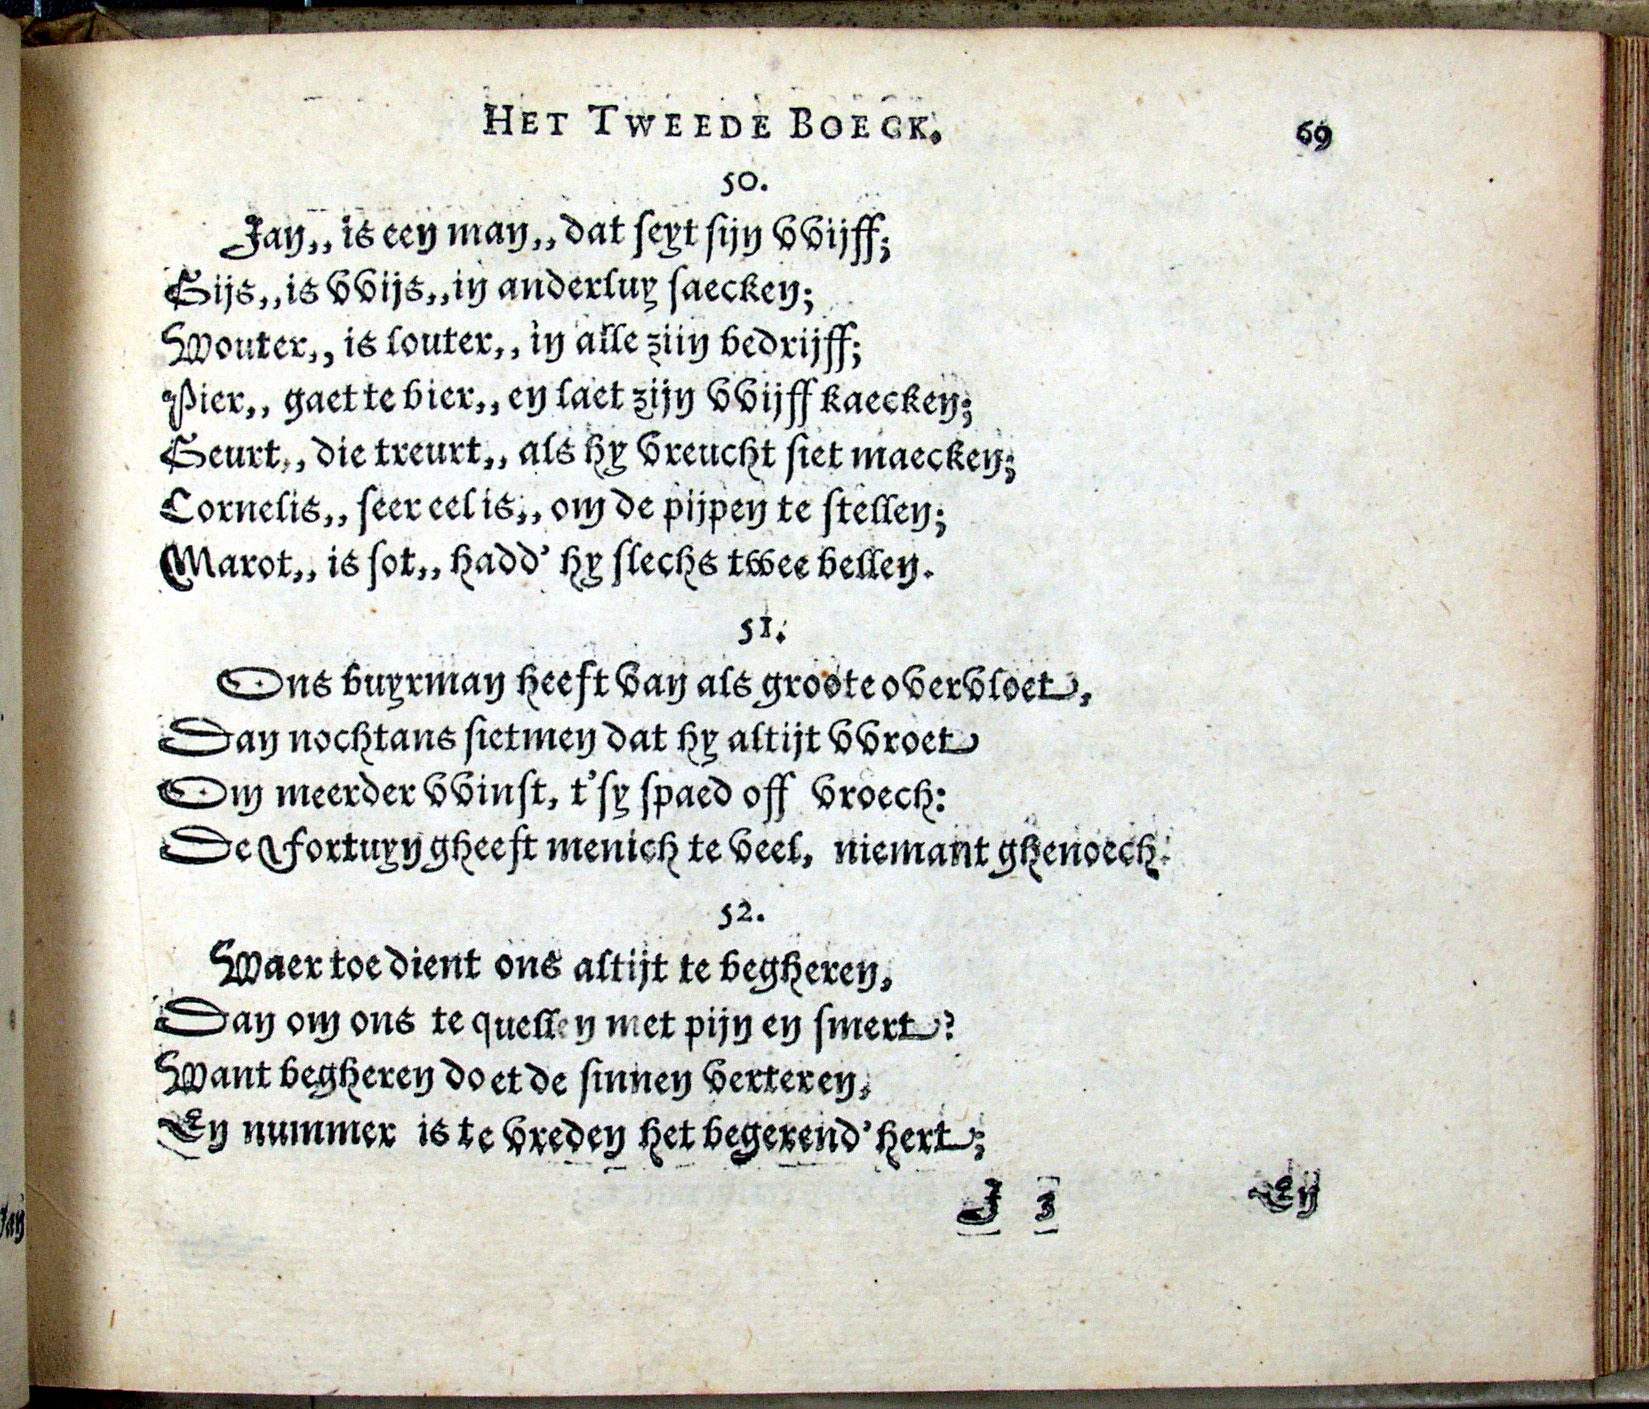 HET TWEEDE BOECK.
69
50.
Jan,, is een man,, dat seyt sijn vvijff;
Gijs,, is vvijs,, in anderluy saecken;
Wouter,, is louter,, in alle ziin bedrijff;
Pier,, gaet te bier,, en laet zijn vvijff kaecken;
Geurt,, die treurt,, als hy vreucht siet maecken;
Cornelis,, seer eel is,, om de pijpen te stellen;
Marot,, is sot,, hadd' hy slechs twee bellen.
51.
Ons buyrman heeft van als groote overvloet,
Dan nochtans sietmen dat hy altijt vvroet
Om meerder vvinst, t'sy spaed off vroech:
De Fortuyn gheeft menich te veel, niemant ghenoech.
52.
Waer toe dient ons altijt te begheren,
Dan om ons te quellen met pijn en smert?
Want begheren doet de sinnen verteren,
En nummer is te vreden het begerend' hert;
I 3
En
Jan